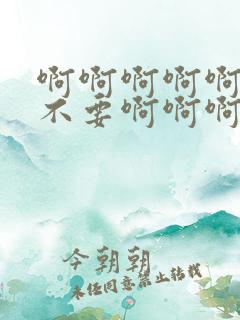 啊啊啊啊啊
不要啊啊啊
今朝朝
未经同意禁止转载